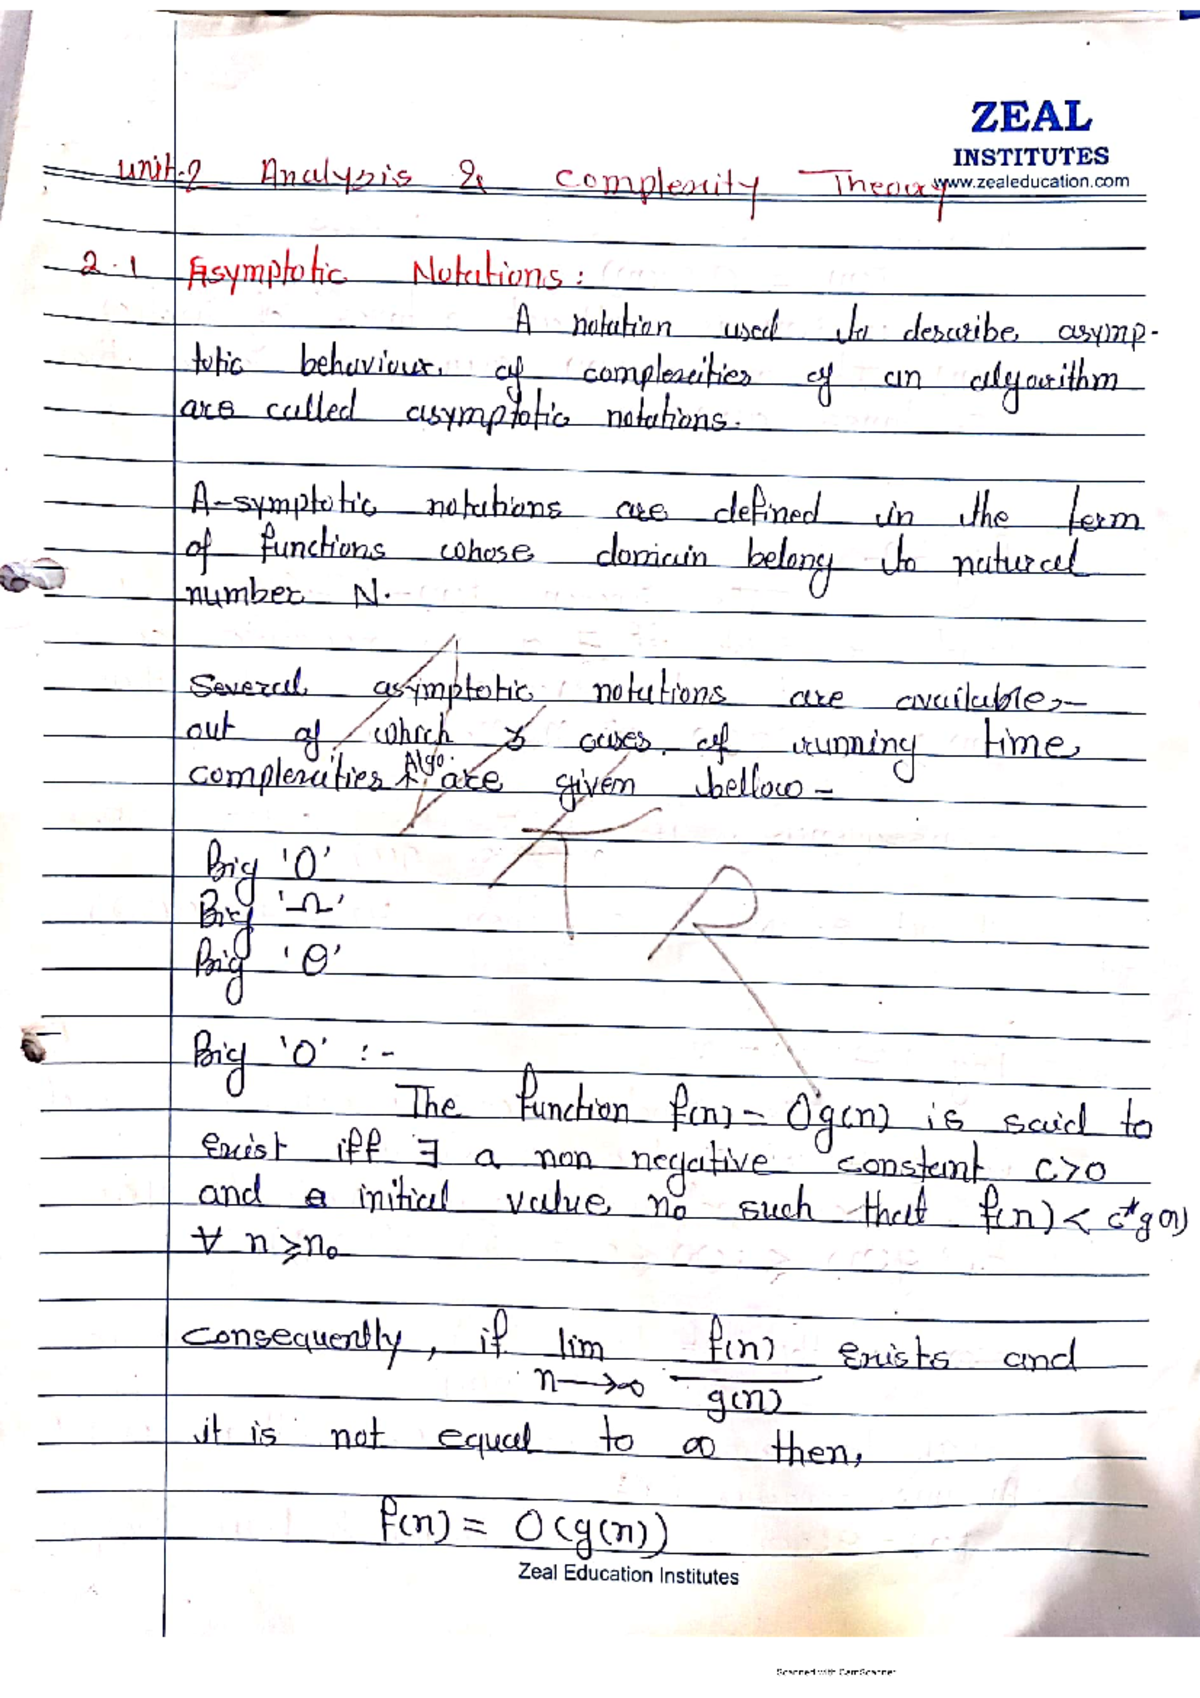 ZEAL
INSTITUTES
www.zealeducation.com
Unit-2 Analysis & Complexity Theory
2.1 Asymptotic Notations:
A notation used to describe asymp-
totic behaviour of complexities of an algorithm
are called asymptotic notations.
A-symptotic notations are defined in the term
of functions whose domain belong to natural
number N.
Several asymptotic notations are available,-
out of which 3 cases of running time
complexities Algo. are given bellow -
Big 'O'
Big 'Ω'
Big 'Θ'
Big 'O' :-
The function f(n) = O g(n) is said to
exist iff ∃ a non negative constant c>0
and a initial value n₀ such that f(n) < c*g(n)
∀ n ≥ n₀
Consequently, if lim f(n) exists and
n→∞ g(n)
it is not equal to ∞ then,
f(n) = O(g(n))
Zeal Education Institutes
Scanned with CamScanner
ATR